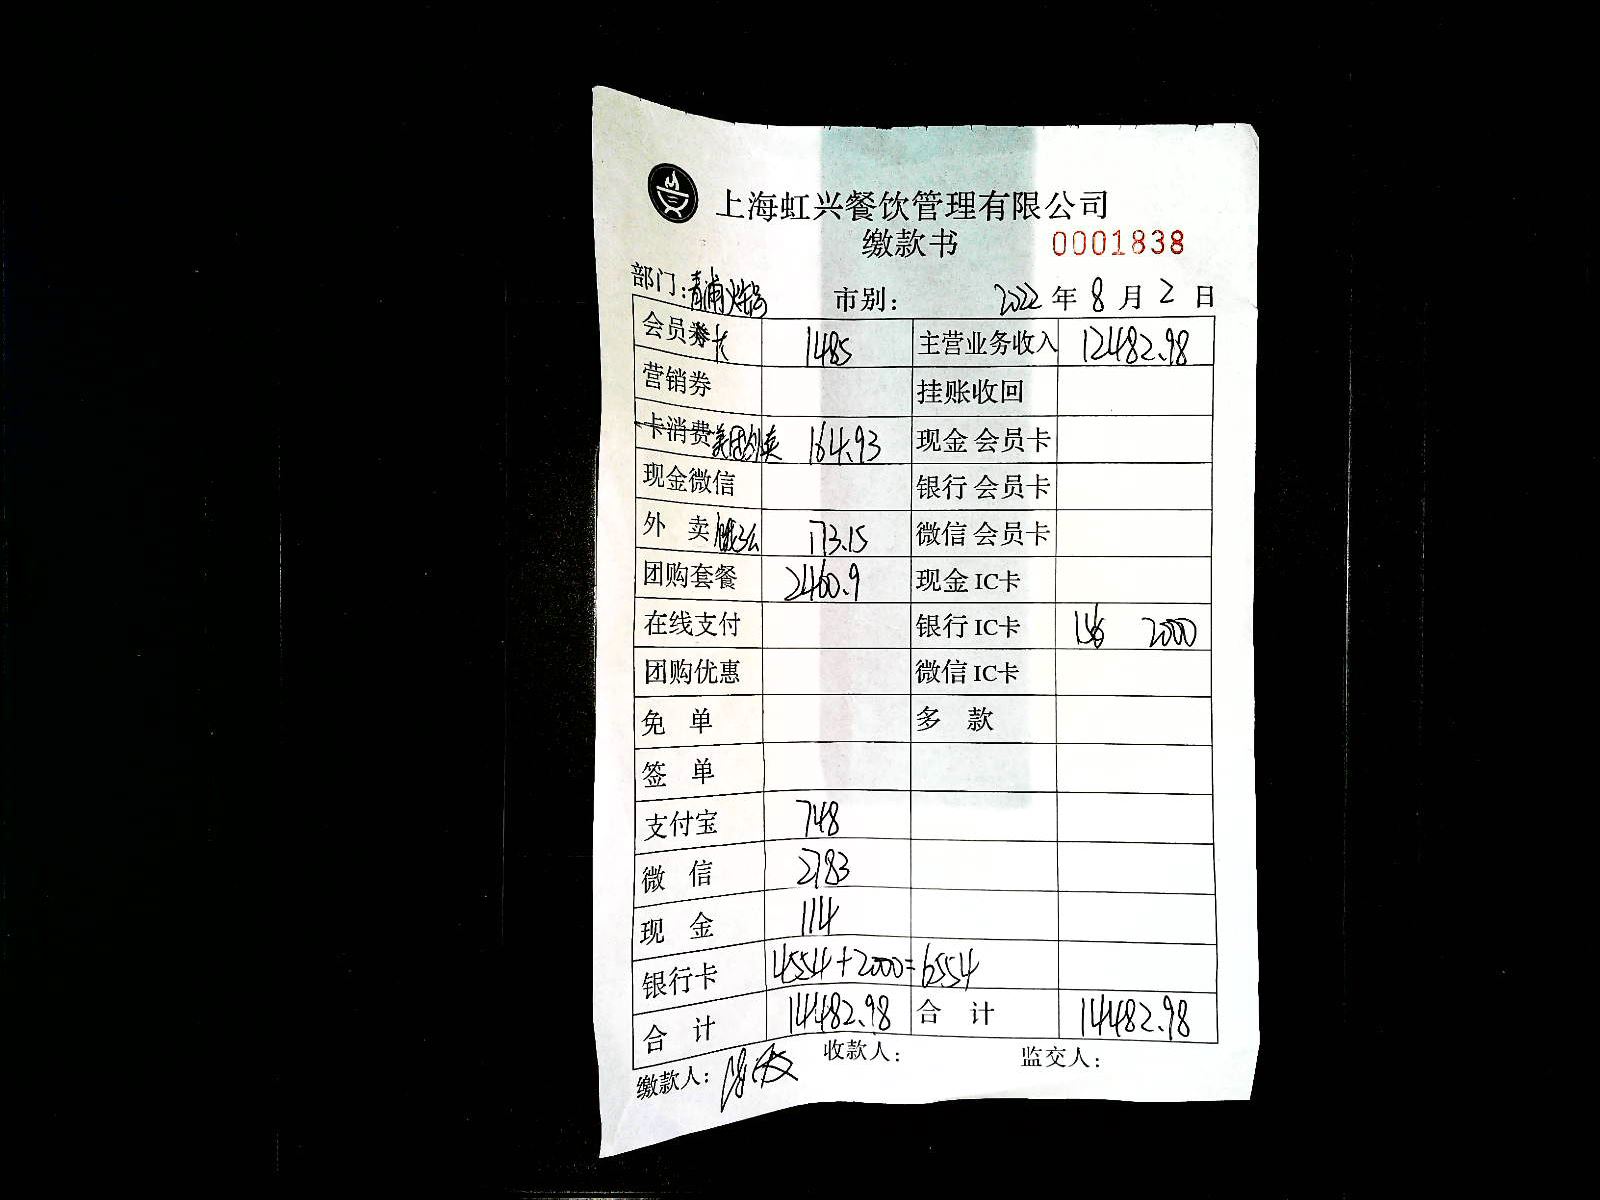 上海虹兴餐饮管理有限公司
缴款书 0001838
部门:青浦火锅 市别: 2022年8月2日
会员卡 1485 主营业务收入 12482.98
营销券 挂账收回
卡消费美团外卖 164.93 现金 会员卡
现金微信 银行 会员卡
外 卖 饿了么 173.15 微信 会员卡
团购套餐 2460.9 现金 IC卡
在线支付 银行 IC卡 2000
团购优惠 微信 IC卡
免 单 多 款
签 单
支付宝 748
微 信 2783
现 金 114
银行卡 4554+2000=6554
合 计 14482.98 合 计 14482.98
缴款人: 收款人: 监交人: